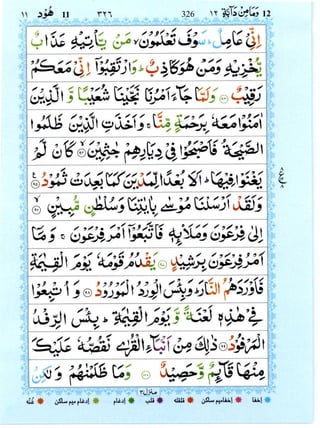 ۱۱ هُوْد 11 ۳۲۶ 326 ۱۲ وَمَا مِنْ دَآبَّةٍ 12
اِنِّيْ عَامِلٌ ؕ سَوْفَ تَعْلَمُوْنَ ۙ مَنْ يَّاْتِيْهِ عَذَابٌ
يُّخْزِيْهِ وَمَنْ هُوَ كَاذِبٌ ؕ وَارْتَقِبُوْۤا اِنِّيْ مَعَكُمْ
رَقِيْبٌ ﴿۹۳﴾ وَلَمَّا جَآءَ اَمْرُنَا نَجَّيْنَا شُعَيْبًا وَّالَّذِيْنَ
اٰمَنُوْا مَعَهٗ بِرَحْمَةٍ مِّنَّا ۚ وَاَخَذَتِ الَّذِيْنَ ظَلَمُوا
الصَّيْحَةُ فَاَصْبَحُوْا فِيْ دِيَارِهِمْ جٰثِمِيْنَ ﴿۹۴﴾ كَاَنْ لَّمْ
يَغْنَوْا فِيْهَا ؕ اَلَا بُعْدًا لِّمَدْيَنَ كَمَا بَعِدَتْ ثَمُوْدُ ﴿۹۵﴾
وَلَقَدْ اَرْسَلْنَا مُوْسٰى بِاٰيٰتِنَا وَسُلْطٰنٍ مُّبِيْنٍ ﴿۹۶﴾
اِلٰى فِرْعَوْنَ وَمَلَا۟ئِهٖ فَاتَّبَعُوْۤا اَمْرَ فِرْعَوْنَ ۚ وَمَاۤ
اَمْرُ فِرْعَوْنَ بِرَشِيْدٍ ﴿۹۷﴾ يَقْدُمُ قَوْمَهٗ يَوْمَ الْقِيٰمَةِ
فَاَوْرَدَهُمُ النَّارَ ؕ وَبِئْسَ الْوِرْدُ الْمَوْرُوْدُ ﴿۹۸﴾ وَاُتْبِعُوْا
فِيْ هٰذِهٖ لَعْنَةً وَّيَوْمَ الْقِيٰمَةِ ؕ بِئْسَ الرِّفْدُ
الْمَرْفُوْدُ ﴿۹۹﴾ ذٰلِكَ مِنْ اَنْۢبَآءِ الْقُرٰى نَقُصُّهٗ عَلَيْكَ
مِنْهَا قَآئِمٌ وَّحَصِيْدٌ ﴿۱۰۰﴾ وَمَا ظَلَمْنٰهُمْ وَلٰكِنْ
منزل ۳
اخفا اخفا میم ساکن قلقلہ قلب ادغام ادغام میم ساکن غنّہ